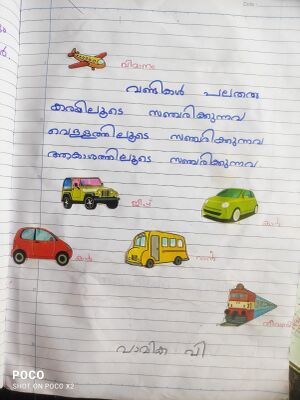 വിമാനം
വണ്ടികൾ പലതരം
കരയിലൂടെ സഞ്ചരിക്കുന്നവ
വെള്ളത്തിലൂടെ സഞ്ചരിക്കുന്നവ
ആകാശത്തിലൂടെ സഞ്ചരിക്കുന്നവ
ജീപ്പ്
കാർ
കാർ
വാമിക പി
POCO
SHOT ON POCO X2